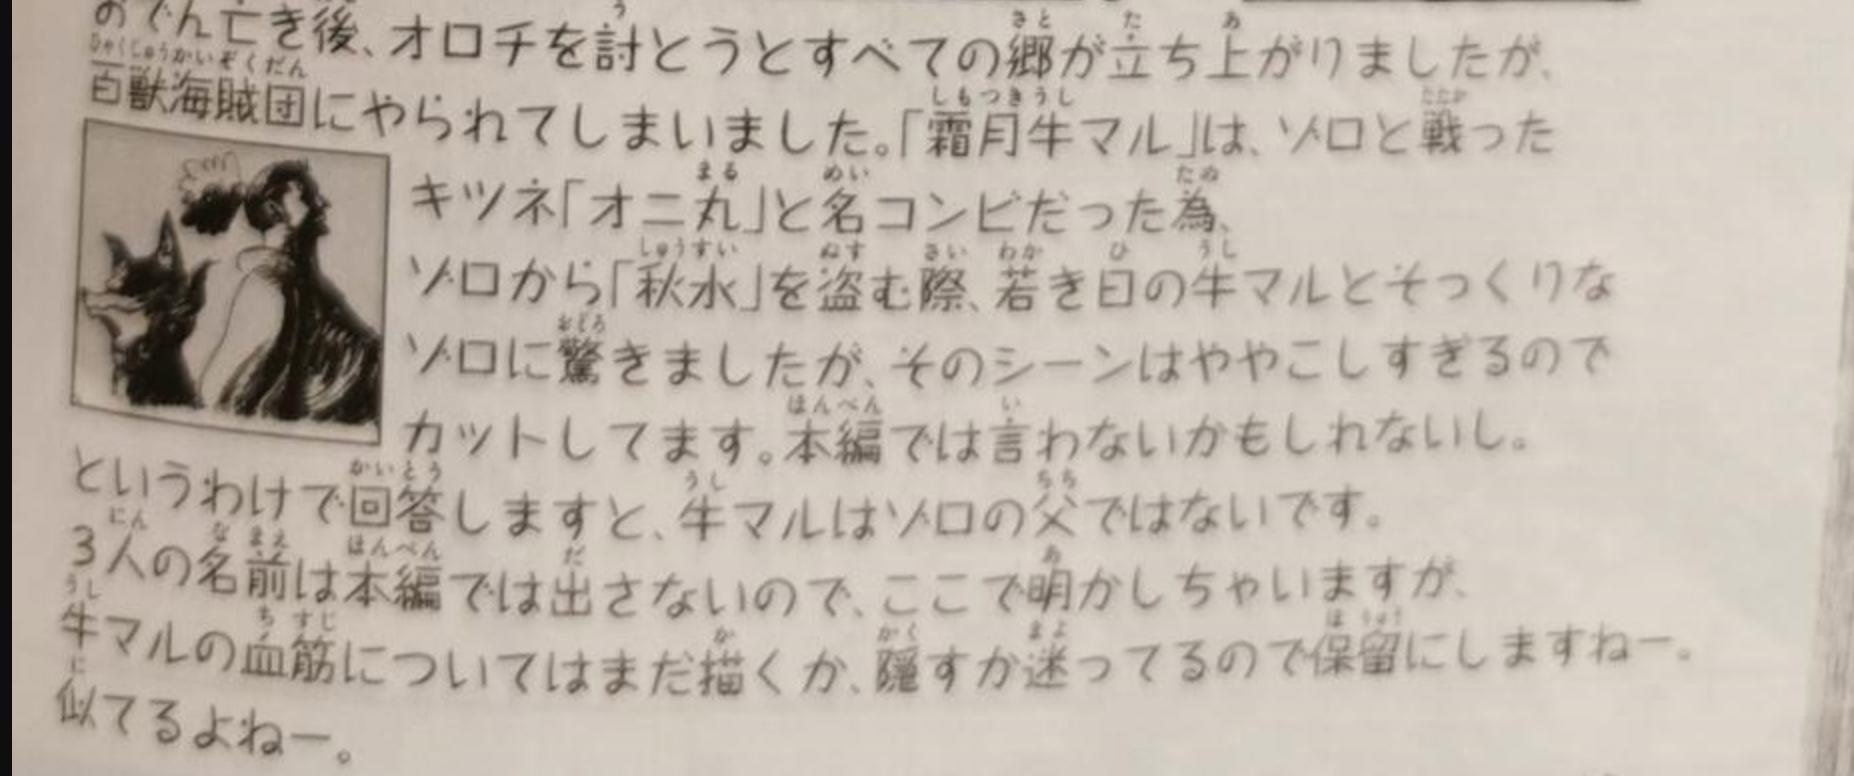 おでん亡き後、オロチを討とうとすべての郷が立ち上がりましたが、
百獣海賊団にやられてしまいました。「霜月牛マル」は、ゾロと戦った
キツネ「オニ丸」と名コンビだった為、
ゾロから「秋水」を盗む際、若き日の牛マルとそっくりな
ゾロに驚きましたが、そのシーンはややこしすぎるので
カットしてます。本編では言わないかもしれないし。
というわけで回答しますと、牛マルはゾロの父ではないです。
3人の名前は本編では出さないので、ここで明かしちゃいますが、
牛マルの血筋についてはまだ描くか、隠すか迷ってるので保留にしますねー。
似てるよねー。